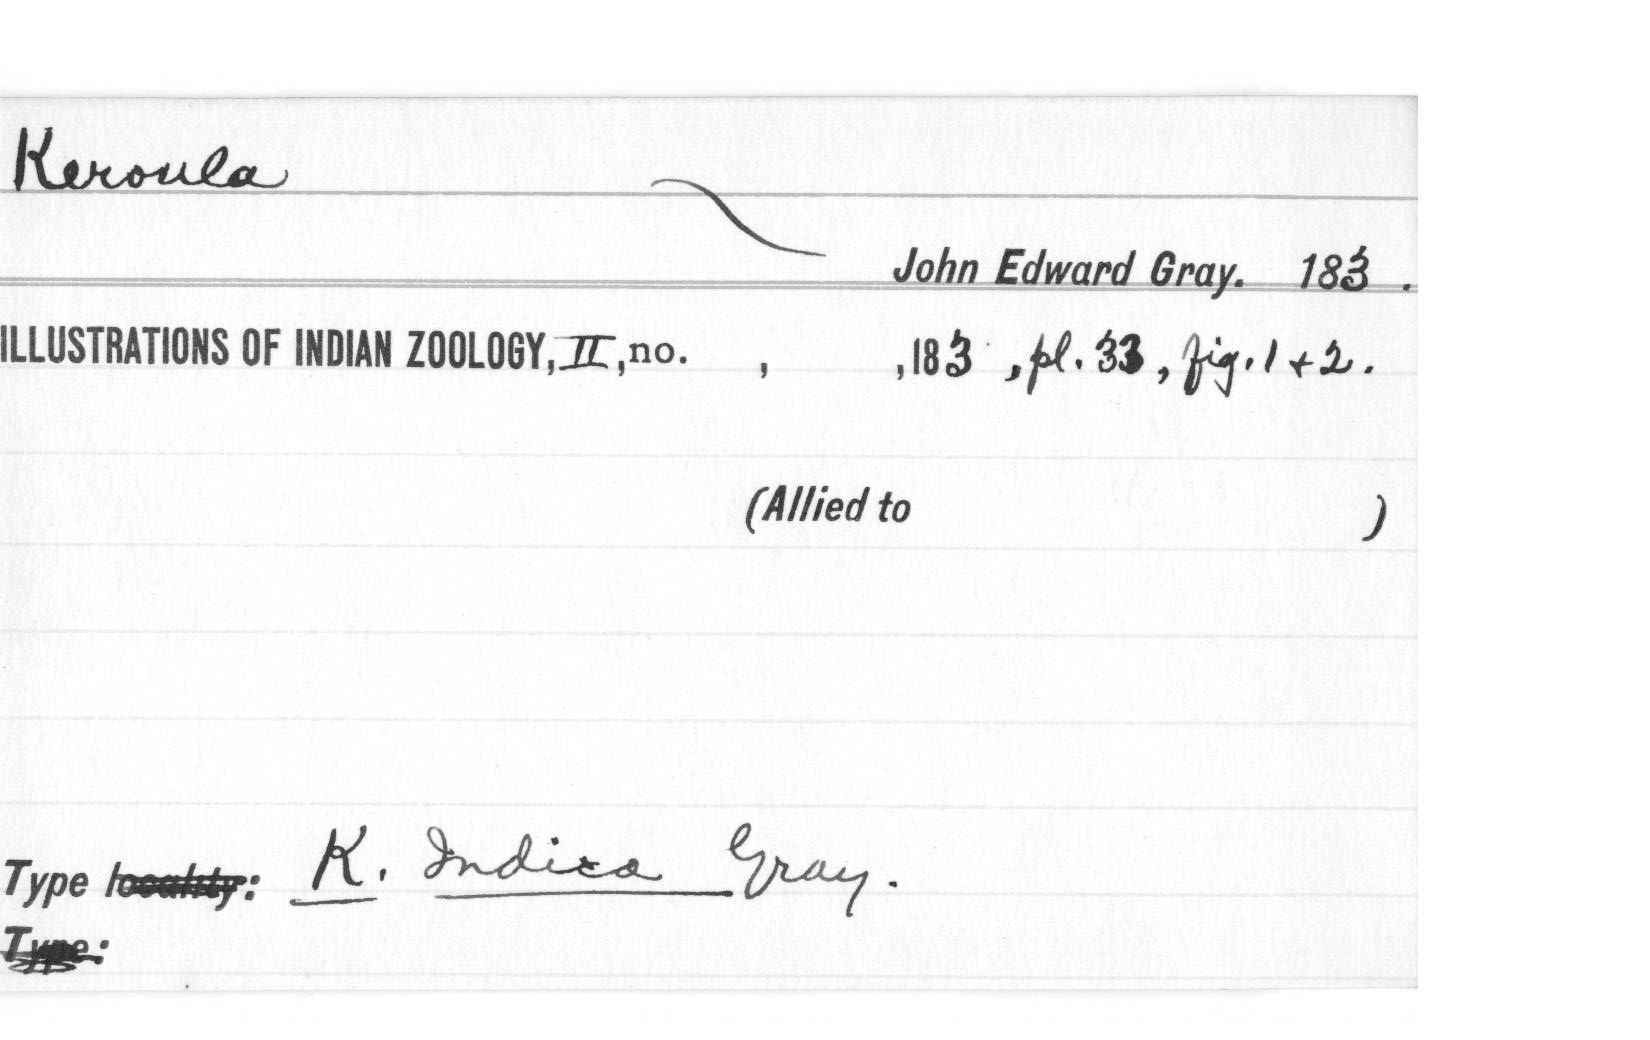 Keroula
John Edward Gray. 183 .
ILLUSTRATIONS OF INDIAN ZOOLOGY, II, no. , ,183 , pl. 33, fig. 1 + 2.
(Allied to )
Type locality: K. Indica Gray.
Type: